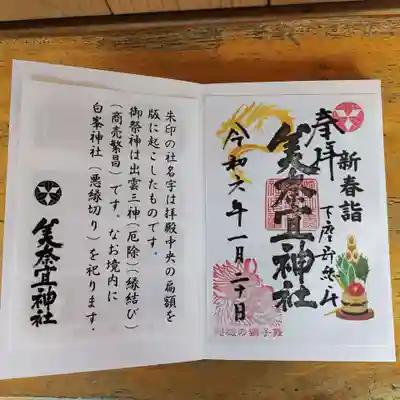 奉拝
新春詣
下座所無シ
美奈宜神社
令和六年一月二十日
朱印の社名字は拝殿中央の扁額を
版に起こしたものです。
御祭神は出雲三神（厄除）（縁結び）
（商売繁昌）です。なお境内に
白峯神社（悪縁切り）を祀ります。
美奈宜神社